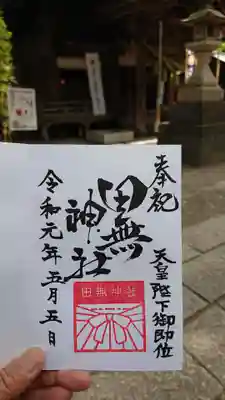 奉祝
天皇陛下御即位
田無
神社
令和元年五月五日
田無神社